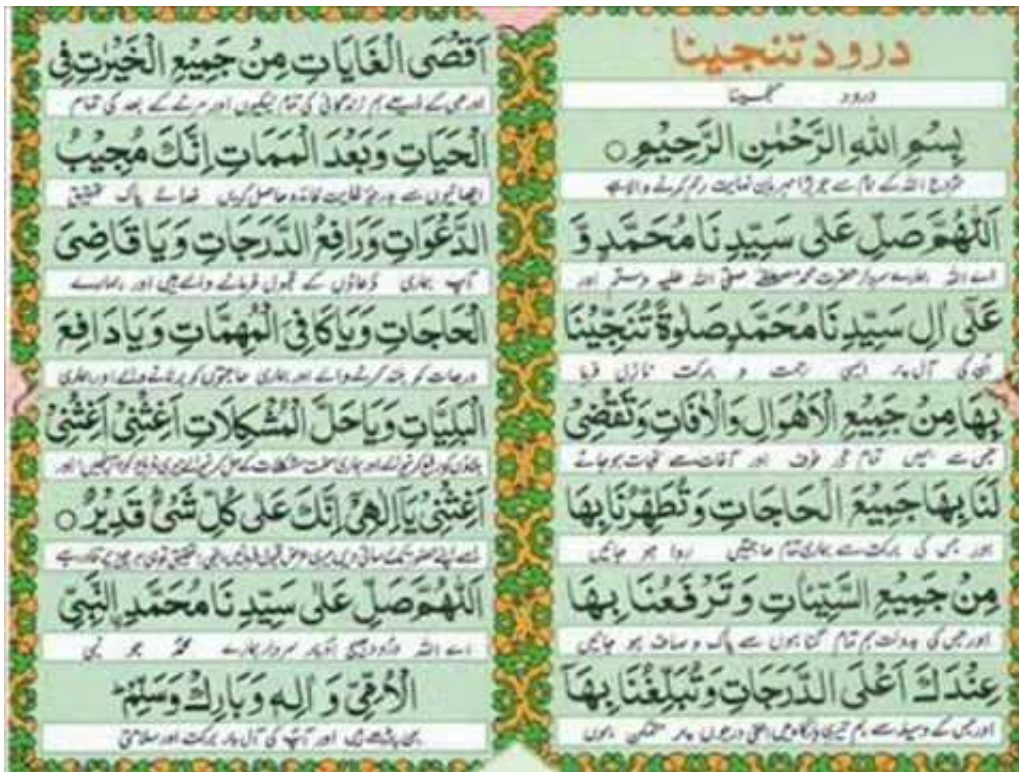 درود تنجینا
درود تنجینا
بِسْمِ اللهِ الرَّحْمٰنِ الرَّحِيْمِ ○
شروع اللہ کے نام سے جو بڑا مہربان نہایت رحم کرنے والا ہے
اَللّٰهُمَّ صَلِّ عَلٰى سَيِّدِنَا مُحَمَّدٍ وَّ
اے اللہ ہمارے سردار حضرت محمد مصطفےٰ صلی اللہ علیہ وسلم اور
عَلٰٓى اٰلِ سَيِّدِنَا مُحَمَّدٍ صَلٰوةً تُنَجِّيْنَا
ان کی آل پر ایسی رحمت و برکت نازل فرما
بِهَا مِنْ جَمِيْعِ الْاَهْوَالِ وَالْاٰفَاتِ وَتَقْضِىْ
جس سے ہمیں تمام خوف اور آفات سے نجات ہو جائے
لَنَا بِهَا جَمِيْعَ الْحَاجَاتِ وَتُطَهِّرُنَا بِهَا
اور جس کی برکت سے ہماری تمام حاجتیں روا ہو جائیں
مِنْ جَمِيْعِ السَّيِّاٰتِ وَتَرْفَعُنَا بِهَا
اور جس کی بدولت ہم تمام گناہوں سے پاک و صاف ہو جائیں
عِنْدَكَ اَعْلَى الدَّرَجَاتِ وَتُبَلِّغُنَا بِهَآ
اور جس کے وسیلہ سے ہم تیری بارگاہ میں اعلیٰ درجوں پر متمکن ہوں
اَقْصَى الْغَايَاتِ مِنْ جَمِيْعِ الْخَيْرٰتِ فِى
اور جس کے ذریعے ہم زندگانی کی تمام نیکیوں اور مرنے کے بعد کی تمام
الْحَيَاتِ وَبَعْدَ الْمَمَاتِ اِنَّكَ مُجِيْبُ
اچھائیوں سے بدرجہ غایت فائدہ حاصل کریں خدائے پاک تحقیق
الدَّعْوَاتِ وَرَافِعُ الدَّرَجَاتِ وَيَا قَاضِىَ
آپ ہماری دُعاؤں کے قبول فرمانے والے ہیں اور ہمارے
الْحَاجَاتِ وَيَا كَافِىَ الْمُهِمَّاتِ وَيَا دَافِعَ
درجات کو بلند کرنے والے اور ہماری حاجتوں کو برلانے والے اور ہماری
الْبَلِيَّاتِ وَيَا حَلَّ الْمُشْكِلَاتِ اَغِثْنِىْ اَغِثْنِىْ
بلاؤں کو رفع کرنے والے اور ہماری سخت مشکلات کے حل کرنے والے میری فریاد کو اور
اَغِثْنِىْ يَآ اِلٰهِىْ اِنَّكَ عَلٰى كُلِّ شَىْءٍ قَدِيْرٌ ○
اسے اپنے حضور تک میری عرض قبول الٰہی تحقیق تو ہی ہر چیز پر قادر ہے
اَللّٰهُمَّ صَلِّ عَلٰى سَيِّدِنَا مُحَمَّدِ النَّبِىِّ
اے اللہ درود بھیج اوپر سردار ہمارے محمدؐ جو نبی
الْاُمِّىِّ وَ اٰلِهٖ وَبَارِكْ وَسَلِّمْ
اور آپ کی آل پر برکت اور سلامتی